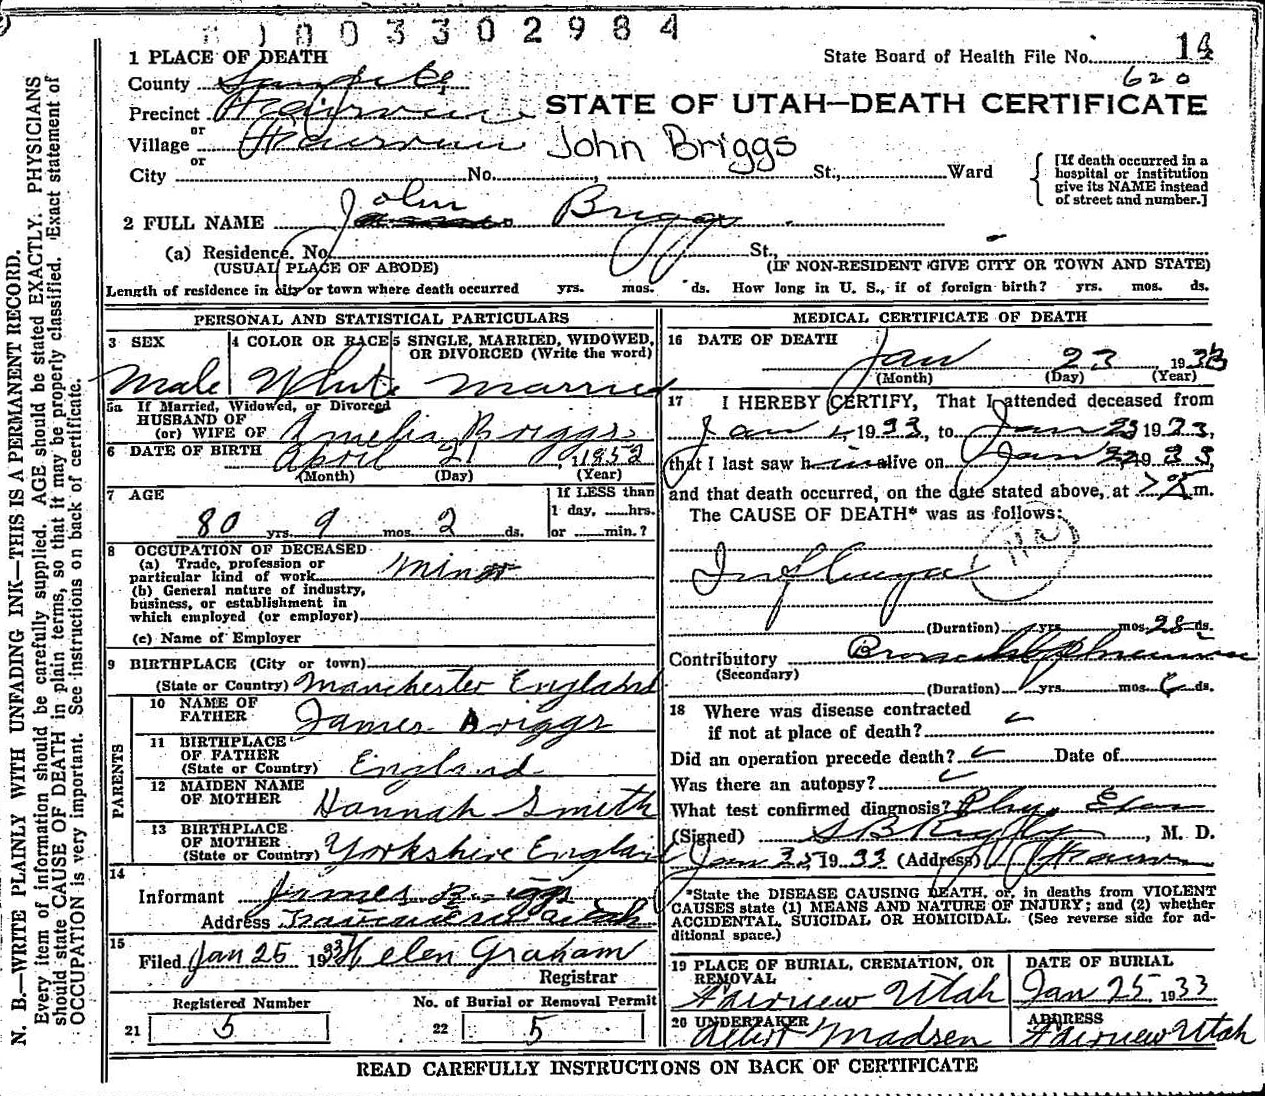 0 0 3 3 0 2 9 8 4
1 PLACE OF DEATH
State Board of Health File No. 14
620
County Sanpete
Precinct Fairview
STATE OF UTAH—DEATH CERTIFICATE
or
Village Fairview
John Briggs
or
City No. , St., Ward
[If death occurred in a hospital or institution give its NAME instead of street and number.]
2 FULL NAME John Briggs
(a) Residence. No. St.,
(USUAL PLACE OF ABODE) (IF NON-RESIDENT GIVE CITY OR TOWN AND STATE)
Length of residence in city or town where death occurred yrs. mos. ds. How long in U. S., if of foreign birth? yrs. mos. ds.
PERSONAL AND STATISTICAL PARTICULARS
3 SEX
Male
4 COLOR OR RACE
White
5 SINGLE, MARRIED, WIDOWED, OR DIVORCED (Write the word)
Married
5a If Married, Widowed, or Divorced
HUSBAND OF
(or) WIFE OF Amelia Briggs
6 DATE OF BIRTH April 21, 1852
(Month) (Day) (Year)
7 AGE
80 yrs. 9 mos. 2 ds.
If LESS than
1 day, hrs.
or min.?
8 OCCUPATION OF DECEASED
(a) Trade, profession or
particular kind of work Minor
(b) General nature of industry,
business, or establishment in
which employed (or employer)
(c) Name of Employer
9 BIRTHPLACE (City or town)
(State or Country) Manchester England
PARENTS
10 NAME OF
FATHER James Briggs
11 BIRTHPLACE
OF FATHER
(State or Country) England
12 MAIDEN NAME
OF MOTHER Hannah Smith
13 BIRTHPLACE
OF MOTHER
(State or Country) Yorkshire England
14
Informant James Briggs
Address Fairview Utah
15
Filed Jan 25 1933 Helen Graham
Registrar
Registered Number
21 5
No. of Burial or Removal Permit
22 5
MEDICAL CERTIFICATE OF DEATH
16 DATE OF DEATH
Jan 23 1933
(Month) (Day) (Year)
17 I HEREBY CERTIFY, That I attended deceased from
Jan 1, 1933, to Jan 23 1933,
that I last saw him alive on Jan 22, 1933,
and that death occurred, on the date stated above, at m.
The CAUSE OF DEATH* was as follows:
Influenza
(Duration) yrs. mos. 28 ds.
Contributory Bronchial Pneumonia
(Secondary)
(Duration) yrs. mos. 6 ds.
18 Where was disease contracted
if not at place of death?
Did an operation precede death? Date of
Was there an autopsy?
What test confirmed diagnosis? Phy. Exam
(Signed) S B Rigby, M. D.
Jan 25, 1933 (Address) Fairview
*State the DISEASE CAUSING DEATH, or, in deaths from VIOLENT
CAUSES state (1) MEANS AND NATURE OF INJURY; and (2) whether
ACCIDENTAL, SUICIDAL OR HOMICIDAL. (See reverse side for ad-
ditional space.)
19 PLACE OF BURIAL, CREMATION, OR
REMOVAL
Fairview Utah
DATE OF BURIAL
Jan 25 1933
20 UNDERTAKER
Albert Madsen
ADDRESS
Fairview Utah
READ CAREFULLY INSTRUCTIONS ON BACK OF CERTIFICATE
N. B.—WRITE PLAINLY WITH UNFADING INK—THIS IS A PERMANENT RECORD.
Every item of information should be carefully supplied. AGE should be stated EXACTLY. PHYSICIANS
should state CAUSE OF DEATH in plain terms, so that it may be properly classified. Exact statement of
OCCUPATION is very important. See instructions on back of certificate.